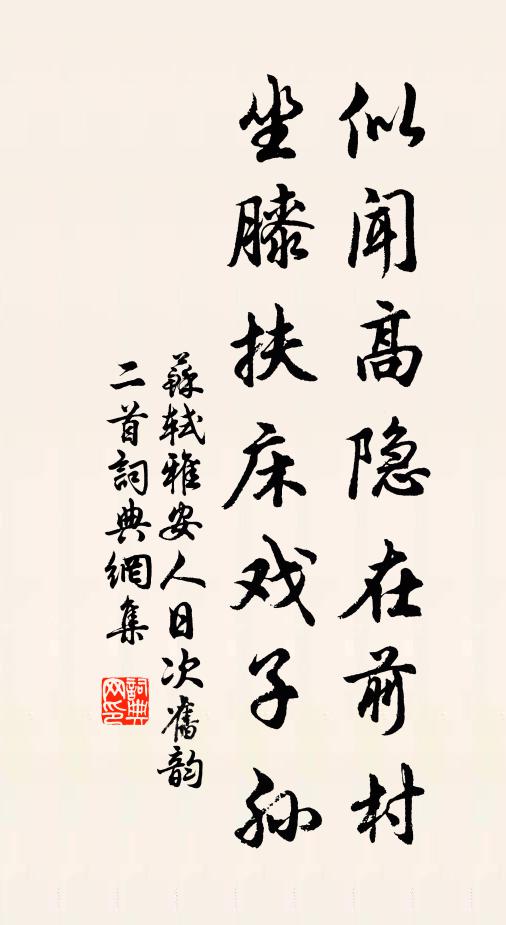 似闻高隐在前村
坐膝扶床戏子孙
蘇軾雅安人日次舊韵
二首詞典網集
詞典网印